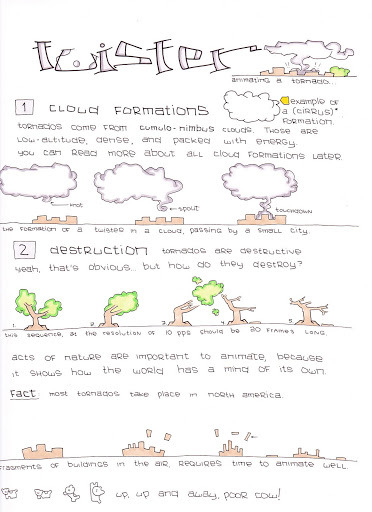 twister
animating a tornado...
1 cloud formations
example of
a (cirrus)*
formation.
tornados come from cumulo-nimbus clouds. those are
low-altitude, dense, and packed with energy.
you can read more about all cloud formations later.
knot
spout
touchdown
the formation of a twister in a cloud, passing by a small city.
2 destruction tornados are destructive
yeah, that's obvious... but how do they destroy?
1. 2. 3. 4. 5.
this sequence, at the resolution of 10 pps should be 30 frames long.
acts of nature are important to animate, because
it shows how the world has a mind of its own.
fact: most tornados take place in north america.
fragments of buildings in the air, requires time to animate well
up, up and away, poor cow!